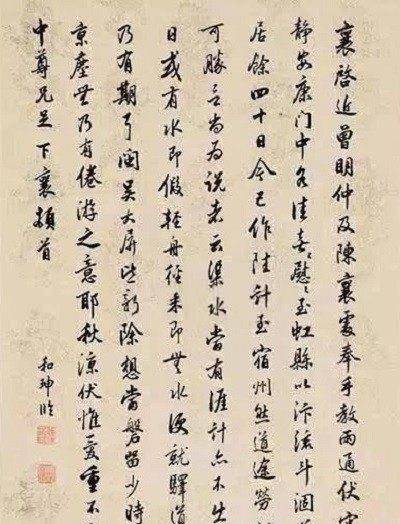 襄啓近曾明仲及陳襄處奉手教兩通伏
靜安康門中各佳喜慰〻至虹縣以汴流斗涸
居餘四十日今已作陸計至宿州然道途勞
可勝言尚為説者云渠水當有涯計亦不
日或有水即假輕舟徑来即無水便就驛道
乃有期耳閩吳大屏皆新除想當磐留少時
京塵無乃有倦游之意耶秋涼伏惟愛重不
中尊兄足下襄頓首
和珅臨